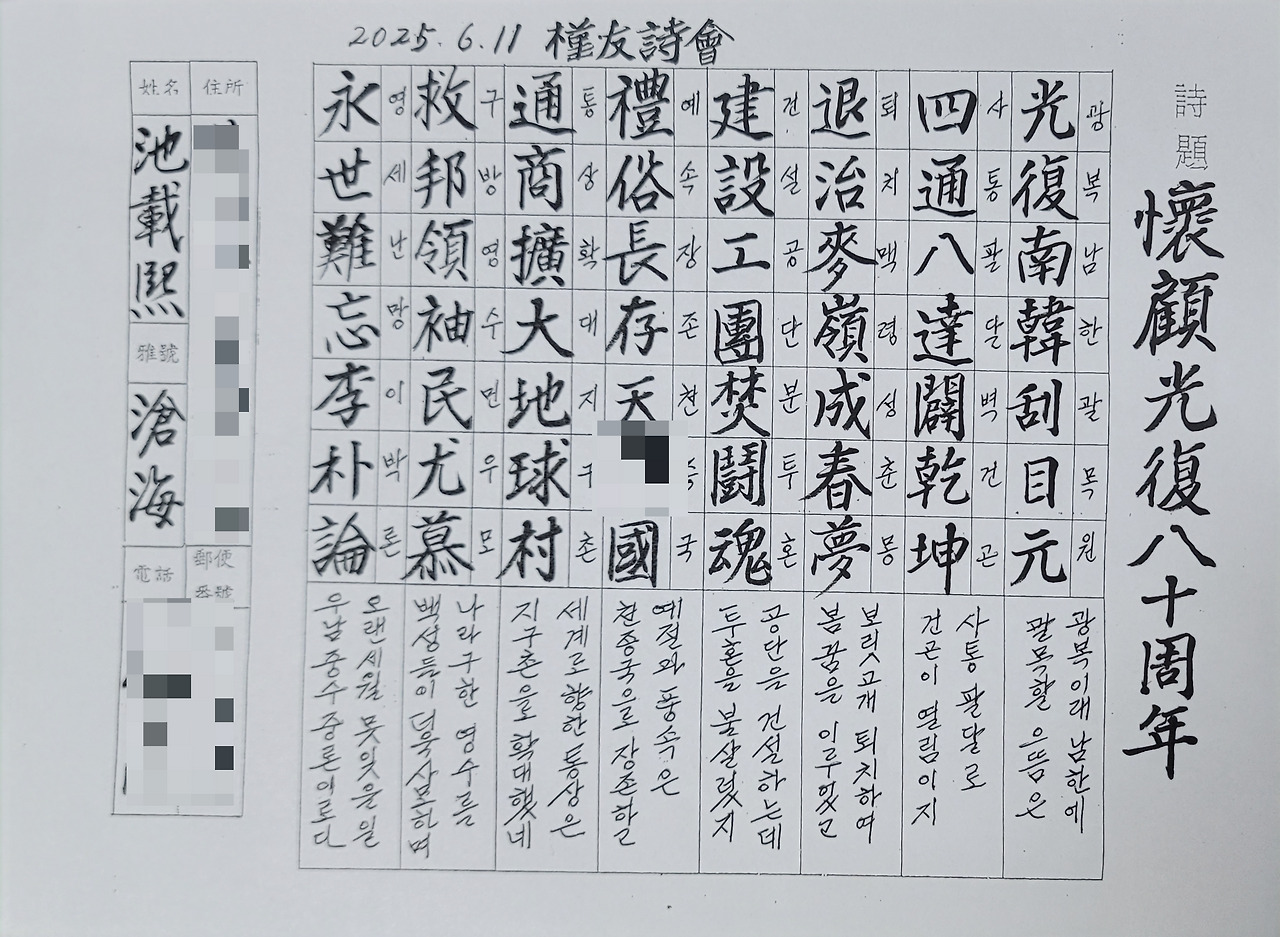 2025. 6. 11 槿友詩會
詩題
懷顧光復八十周年
光復南韓刮目元
광복남한괄목원
四通八達闢乾坤
사통팔달벽건곤
退治麥嶺成春夢
퇴치맥령성춘몽
建設工團焚鬪魂
건설공단분투혼
禮俗長存天國
예속장존천국
通商擴大地球村
통상확대지구촌
救邦領袖民尤慕
구방영수민우모
永世難忘李朴論
영세난망이박론
광복이래 남한에
괄목할 으뜸은
사통팔달로
건곤이 열림이지
보릿고개 퇴치하여
봄꿈을 이루었고
공단을 건설하는데
투혼을 불살렸지
예절과 풍속은
천종국으로 장존하고
세계로 향한 통상은
지구촌을 확대했네
나라 구한 영수를
백성들이 더욱 사모하며
오랜세월 못잊을 일
우남중수 중론이로다
住所
姓名
池載熙
雅號
滄海
郵便番號
電話